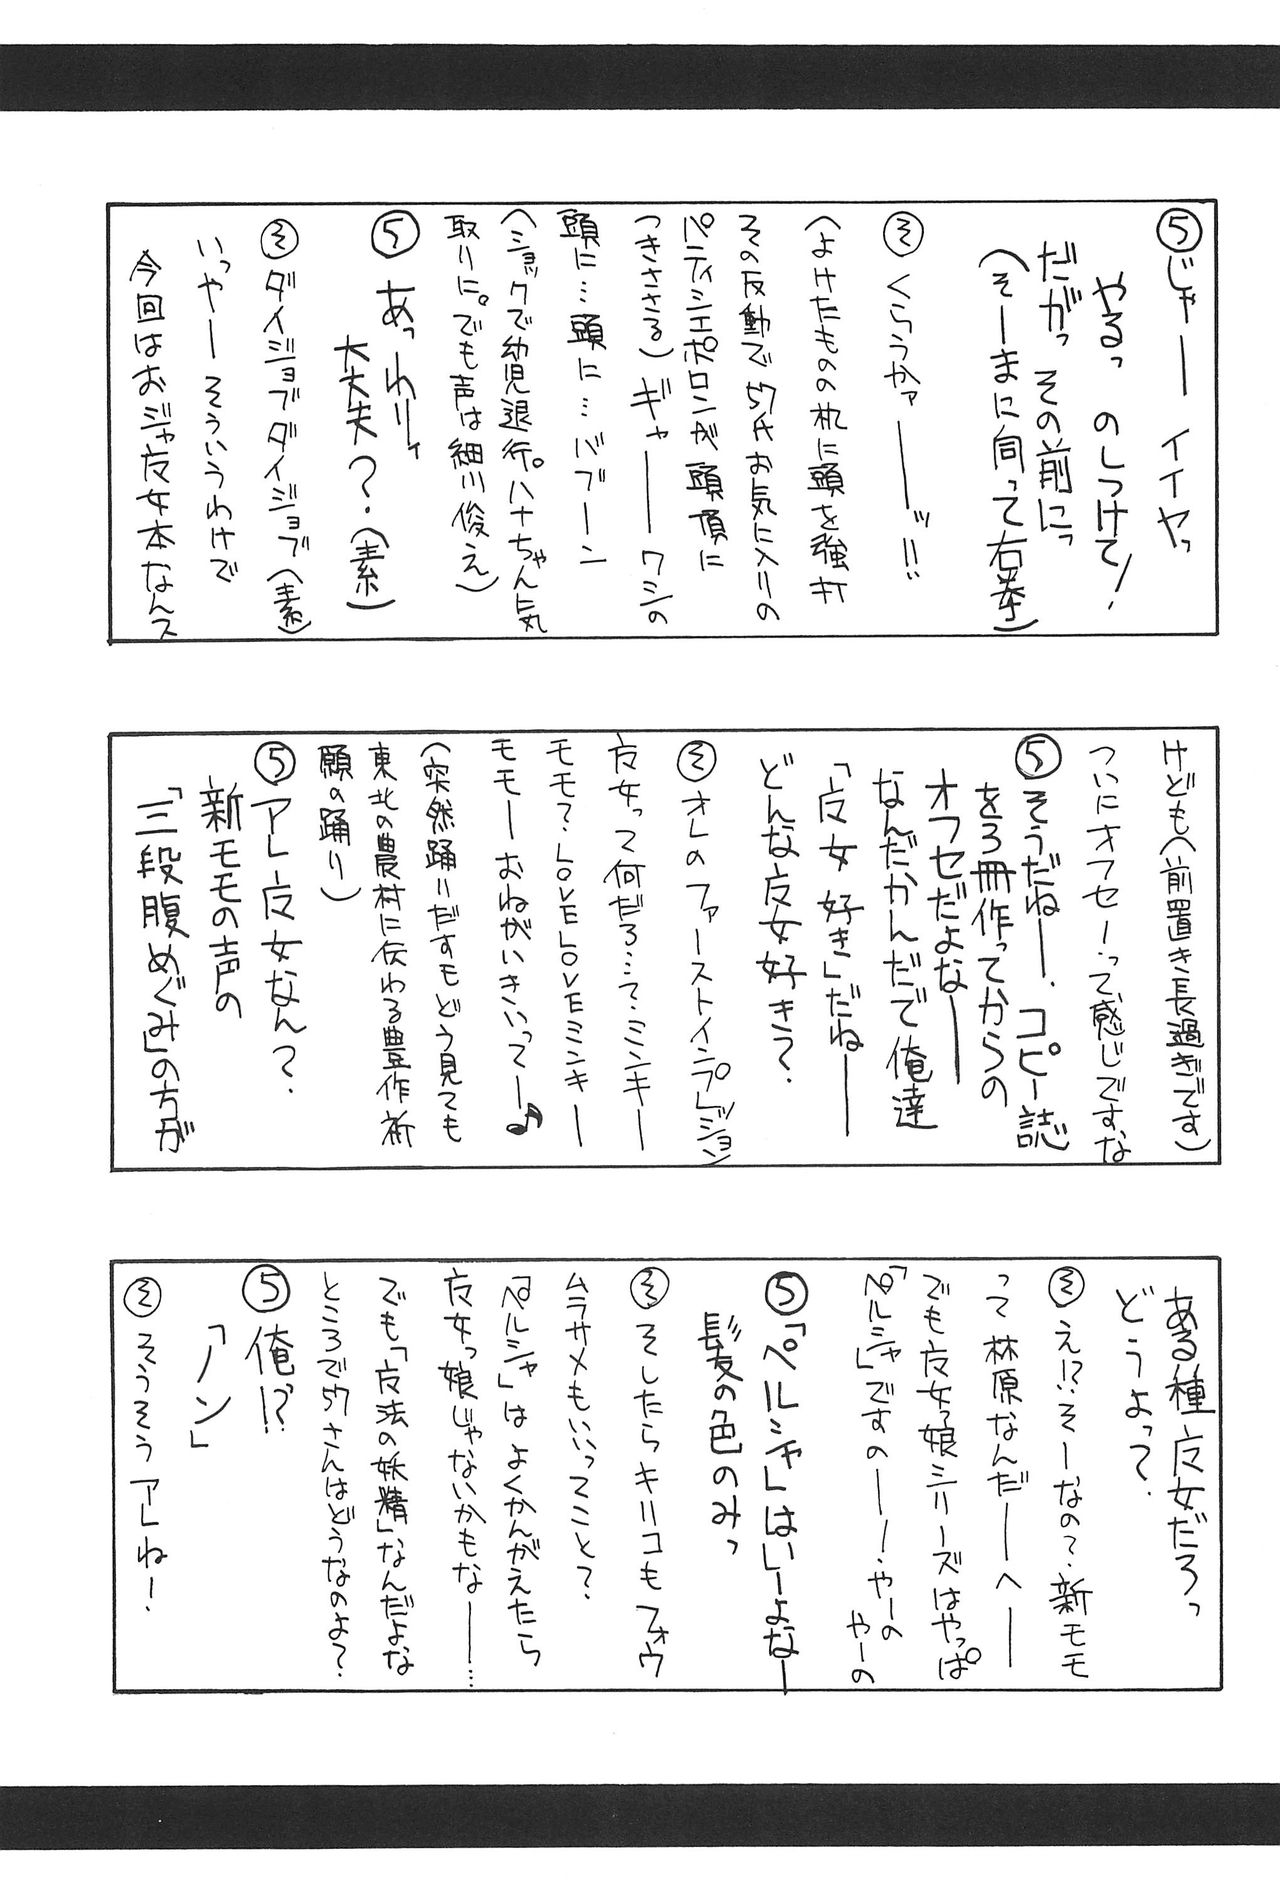 ⑤じゃー イイヤっ
やるっ のしつけて!
だがっ その前にっ
(そーまに向って右拳)
そ くらうかァーーッ!!
(よけたものの机に頭を強打
その反動で57氏お気に入りの
パティシエポロンが頭頂に
つきささる)ギャーー ワシの
頭に…頭に…バブーン
(ショックで幼児退行。ハナちゃん気
取りに。でも声は細川俊え)
⑤ あっ わりィ
大丈夫?(素)
そ ダイジョブダイジョブ(素)
いっやー そういうわけで
今回はおジャ女本なんス
けども(前置き長過ぎです)
ついにオフセーって感じですな
⑤そうだねー. コピー誌
を3冊作ってからの
オフセだよなー
なんだかんだで俺達
「女 好き」だねー
どんな女好き?
そ オレのファーストインプレッション
女って何だろ…?ミンキー
モモ?LOVELOVEミンキー
モモー おねがいきいってー♪
(突然踊りだすもどう見ても
東北の農村に伝わる豊作祈
願の踊り)
⑤アレ女なん?
新モモの声の
「三段腹めぐみ」の方が
ある種女だろっ
どうよって?
そ え!?そーなの?新モモ
って 林原なんだーへー
でも女っ娘シリーズはやっぱ
「ペルシャ」ですのー!やーの
やーの
⑤「ペルシャ」はいーよなー
髪の色のみっ
そ そしたらキリコもフォウ
ムラサメもいいってこと?
「ペルシャ」はよくかんがえたら
女っ娘じゃないかもなー…
でも「法の妖精」なんだよな
ところで57さんはどうなのよ?
⑤俺!?
「ノン」
そ そうそう アレねー!